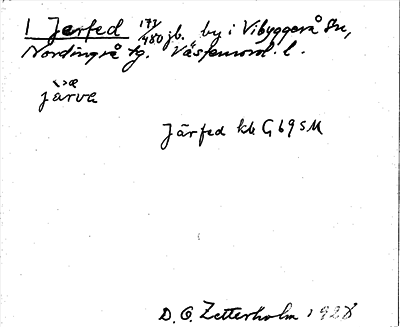 1 Jerfed 177/480 jb. by i Vibyggerå Sn,
Nordingrå tg. Väs l.
järva
Järfed kb G 69 SM
D. O. Zetterholm 1928